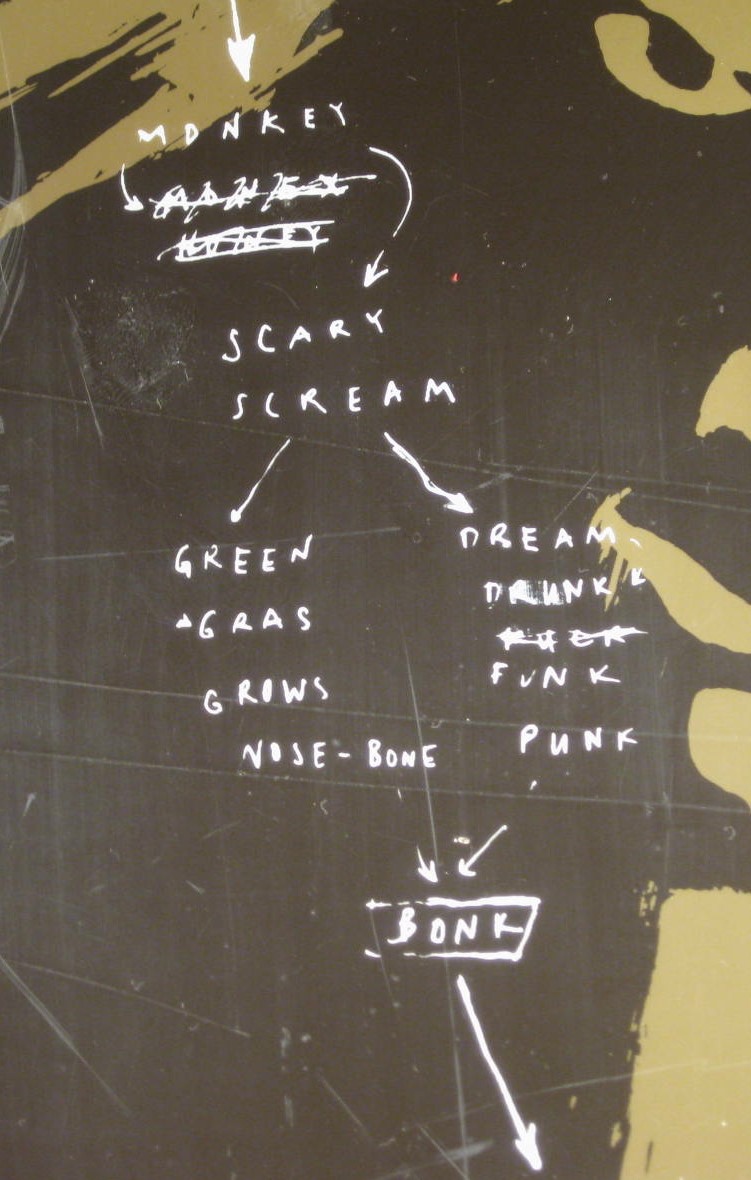 MONKEY
MONKEY
SCARY
SCREAM
GREEN
GRAS
GROWS
NOSE-BONE
DREAM
DRUNK
FUNK
PUNK
BONK